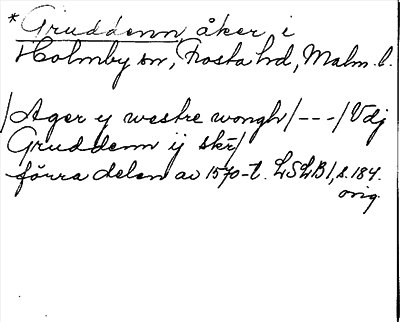 *Gruddenn, åker i
Holmby sn, Frosta hd, Malm. l.
/Ager y westre wongh/---/Vdj
Gruddenn ij skr/
förra delen av 1570-t. LSLB 1, s. 184.
orig.